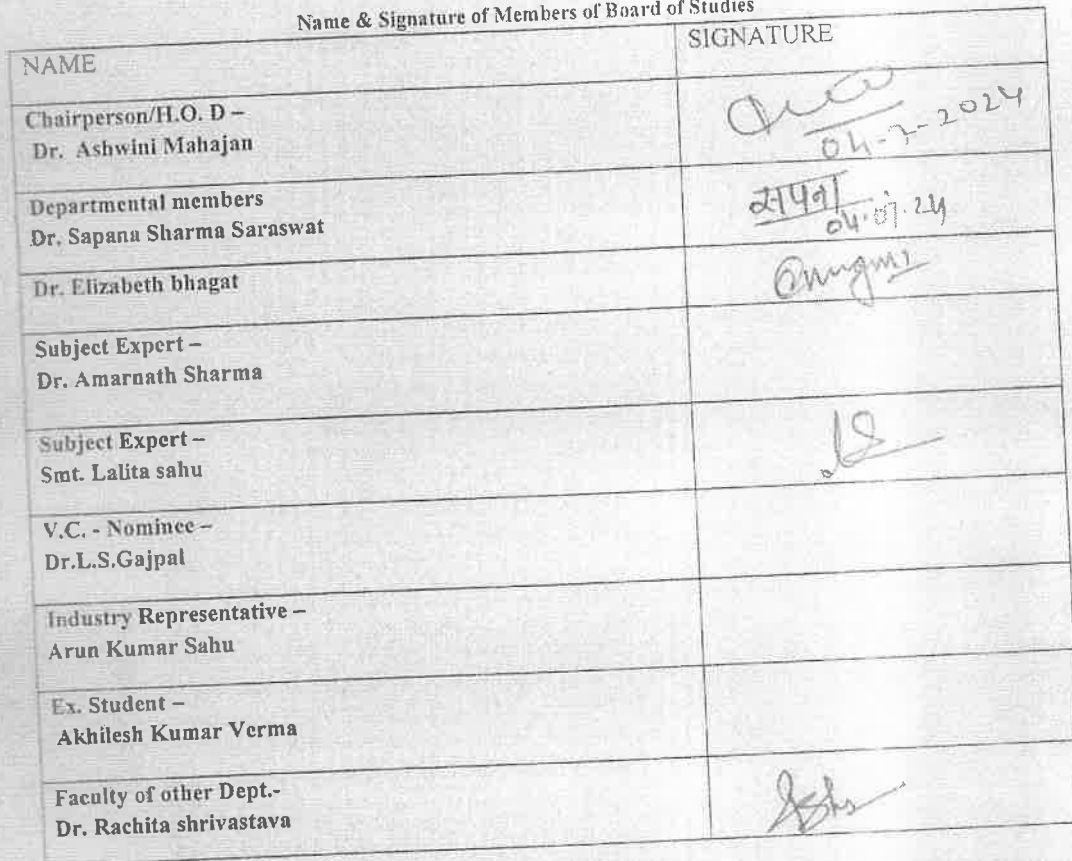 Name & Signature of Members of Board of Studies
NAME
SIGNATURE
Chairperson/H.O. D –
Dr. Ashwini Mahajan
04-7-2024
Departmental members
Dr. Sapana Sharma Saraswat
सपना
04.07.24
Dr. Elizabeth bhagat
Subject Expert –
Dr. Amarnath Sharma
Subject Expert –
Smt. Lalita sahu
V.C. - Nominee –
Dr.L.S.Gajpal
Industry Representative –
Arun Kumar Sahu
Ex. Student –
Akhilesh Kumar Verma
Faculty of other Dept.-
Dr. Rachita shrivastava